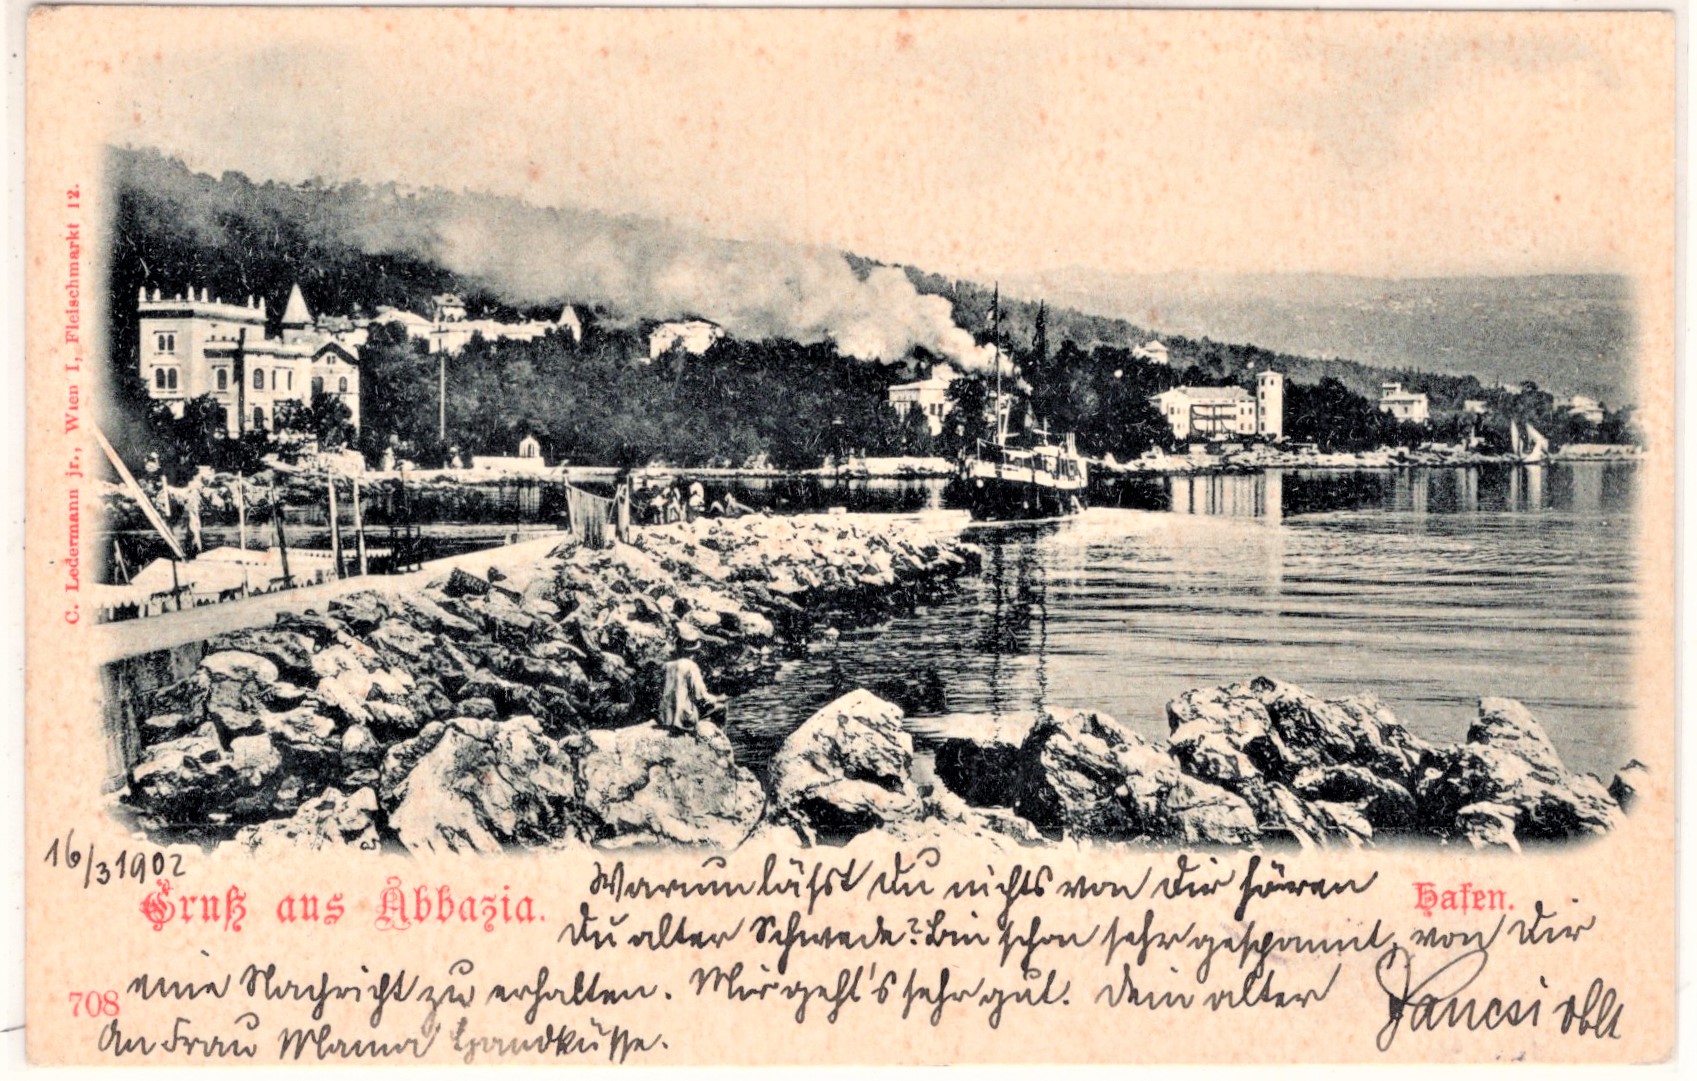 C. Ledermann jr., Wien I, Fleischmarkt 12.
16/3 1902
Gruß aus Abbazia.
Hafen.
Warum läßst Du nichts von Dir hören
Du alter Schwede? Bin schon sehr gespannt, von Dir
eine Nachricht zu erhalten. Mir geht's sehr gut. Dein alter
Jancsi Oblt
708
An Frau Mama Handküsse.